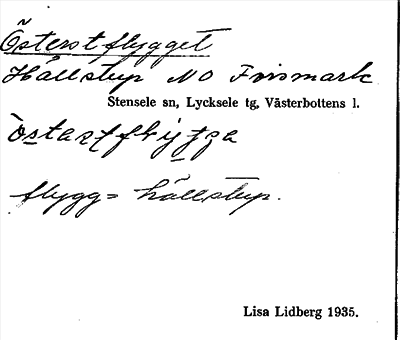 Österstflygget
Hällstup NO Frismark
Stensele sn, Lycksele tg, Västerbottens l.
flygg = hällstup.
Lisa Lidberg 1935.